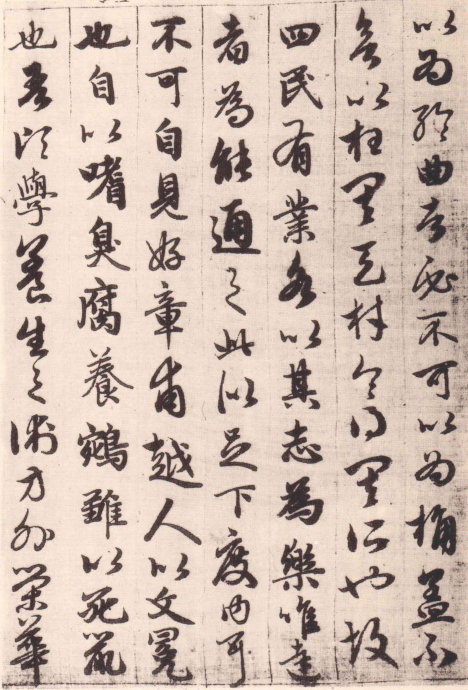 以為輪曲者必不可以為桷蓋不
欲以枉其天材令得其所也故
四民有業各以其志為樂唯達
者為能通之此似足下度內耳
不可自見好章甫越人以文冕
也自以嗜臭腐養鵷雛以死鼠
也吾頃學養生之術方外榮華